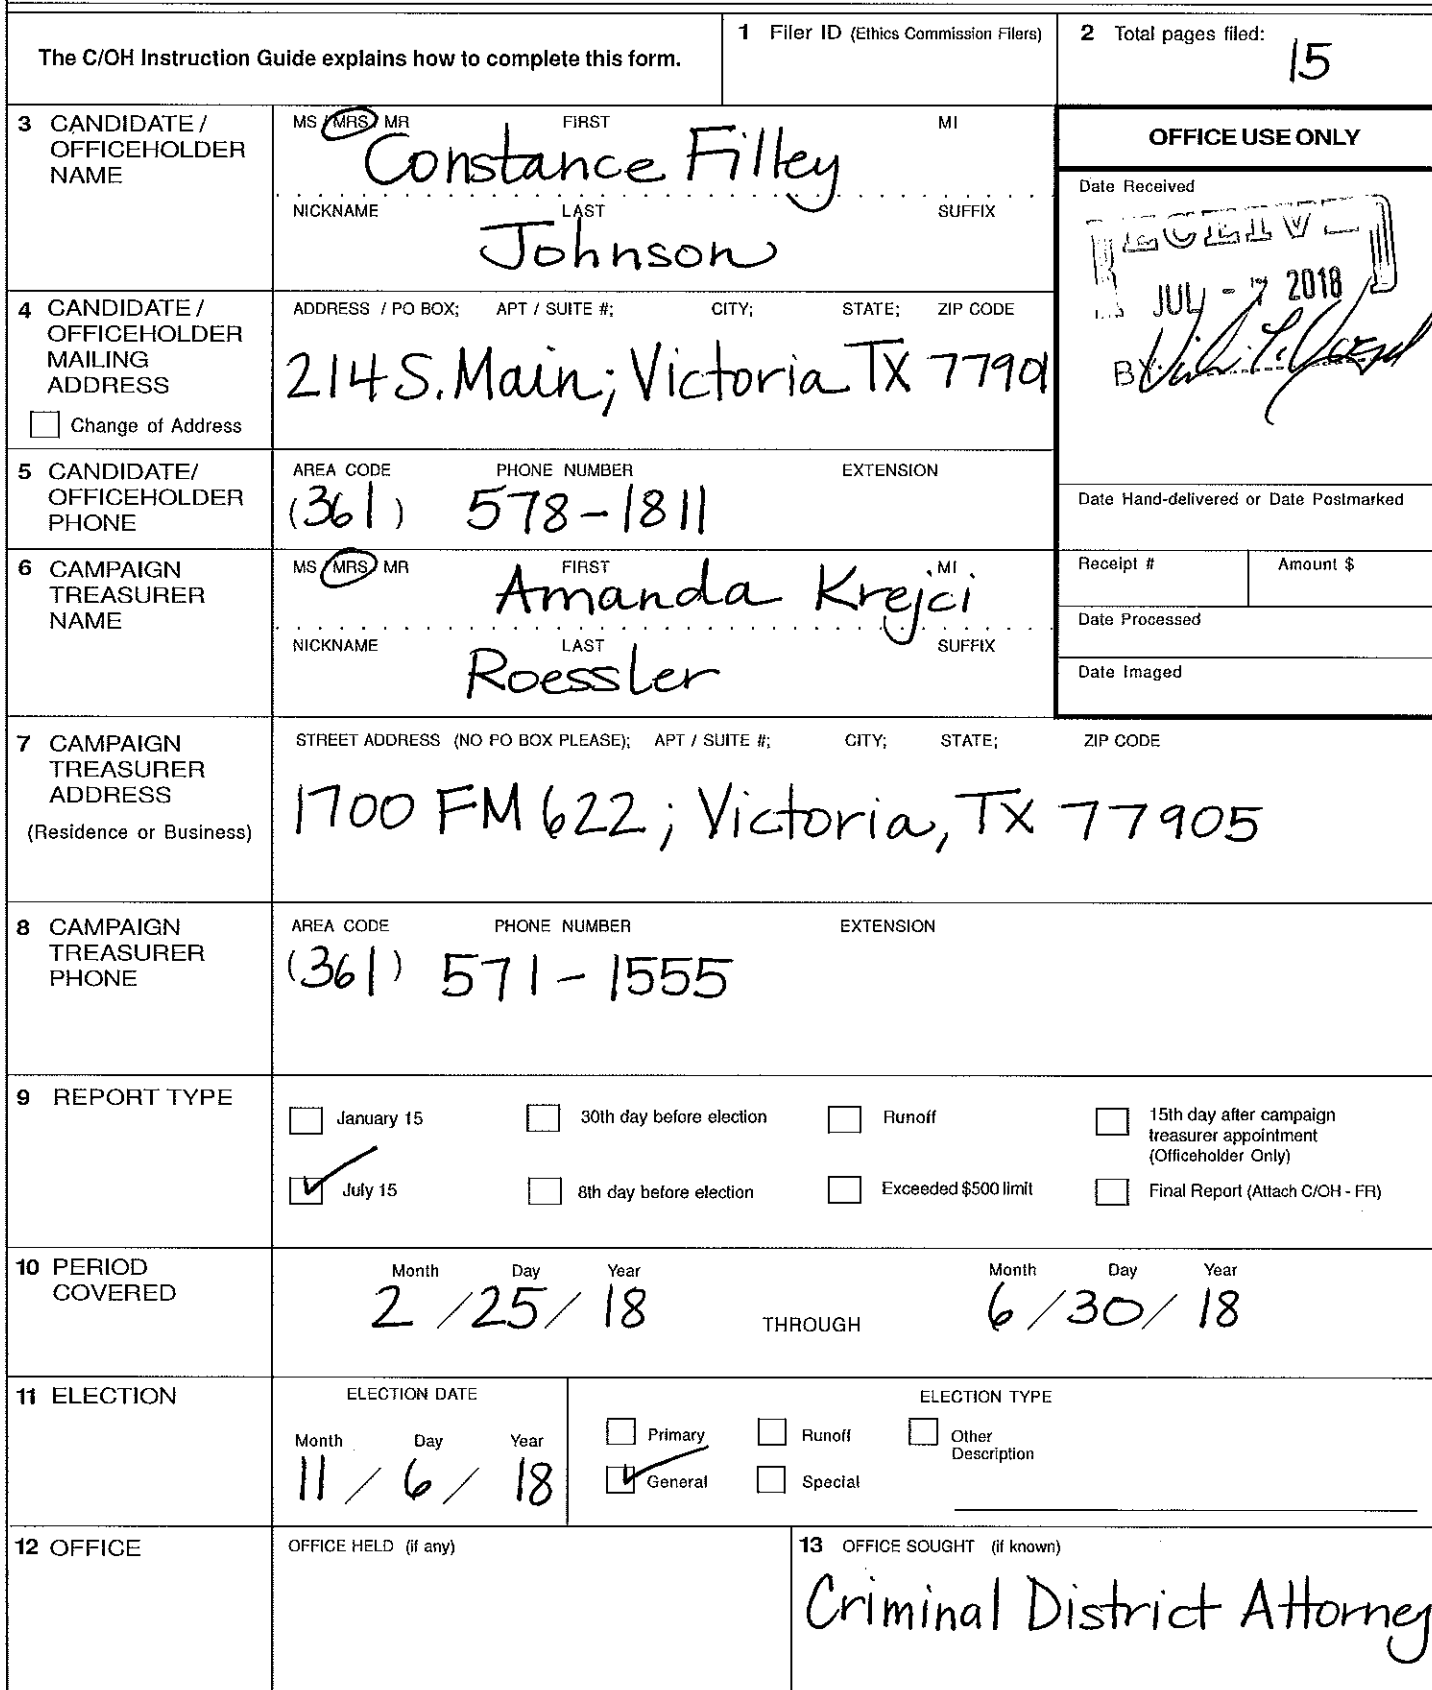 The C/OH Instruction Guide explains how to complete this form.
1 Filer ID (Ethics Commission Filers)
2 Total pages filed:
15
3 CANDIDATE / OFFICEHOLDER NAME
MS / MRS / MR FIRST MI
Constance Filley
NICKNAME LAST SUFFIX
Johnson
OFFICE USE ONLY
Date Received
JUL - 7 2018
BY:
4 CANDIDATE / OFFICEHOLDER MAILING ADDRESS
Change of Address
ADDRESS / PO BOX; APT / SUITE #; CITY; STATE; ZIP CODE
214 S. Main; Victoria TX 77901
5 CANDIDATE/ OFFICEHOLDER PHONE
AREA CODE PHONE NUMBER EXTENSION
(361) 578-1811
Date Hand-delivered or Date Postmarked
6 CAMPAIGN TREASURER NAME
MS / MRS / MR FIRST MI
Amanda Krejci
NICKNAME LAST SUFFIX
Roessler
Receipt # Amount $
Date Processed
Date Imaged
7 CAMPAIGN TREASURER ADDRESS
(Residence or Business)
STREET ADDRESS (NO PO BOX PLEASE); APT / SUITE #; CITY; STATE; ZIP CODE
1700 FM 622; Victoria, TX 77905
8 CAMPAIGN TREASURER PHONE
AREA CODE PHONE NUMBER EXTENSION
(361) 571-1555
9 REPORT TYPE
January 15 30th day before election Runoff 15th day after campaign treasurer appointment (Officeholder Only)
July 15 8th day before election Exceeded $500 limit Final Report (Attach C/OH - FR)
10 PERIOD COVERED
Month Day Year Month Day Year
2 / 25 / 18 THROUGH 6 / 30 / 18
11 ELECTION
ELECTION DATE
Month Day Year
11 / 6 / 18
ELECTION TYPE
Primary Runoff Other Description
General Special
12 OFFICE
OFFICE HELD (if any)
13 OFFICE SOUGHT (if known)
Criminal District Attorney